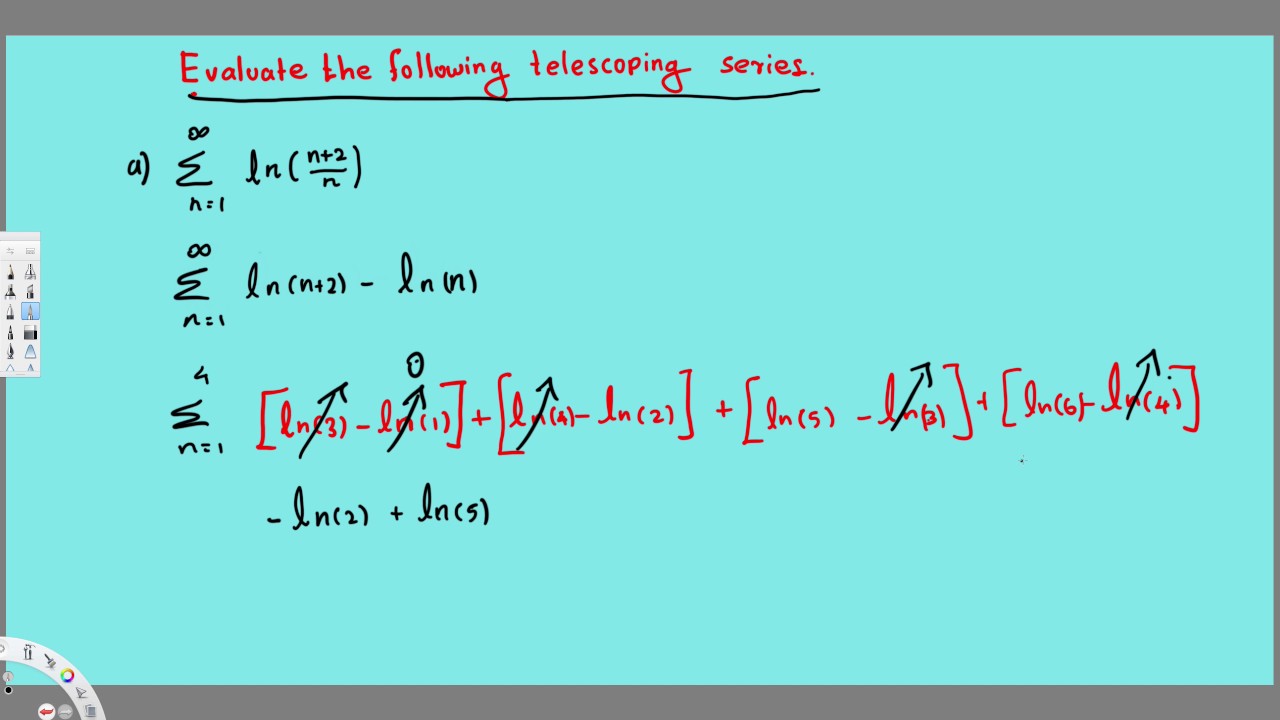 Evaluate the following telescoping series.
a) ∞ Σ n=1 ln(n+2/n)
∞ Σ n=1 ln(n+2) - ln(n)
4 Σ n=1 [ln(3) - ln(1)] 0 + [ln(4) - ln(2)] + [ln(5) - ln(3)] + [ln(6) - ln(4)]
- ln(2) + ln(5)